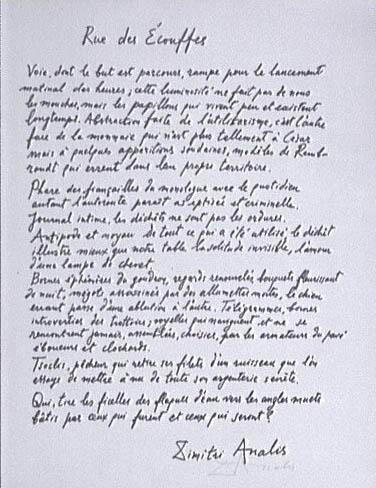 Rue des Écouffes
Voie, dont le but est parcours, rampe pour le lancement
matinal des heures; cette luminosité ne fait pas de nous
les mouches, mais les papillons qui vivent peu et existent
longtemps. Abstraction faite de l'utilitarisme, c'est l'autre
face de la monnaie qui n'est plus tellement à César
mais à quelques apparitions soudaines, modèles de Remb-
randt qui errent dans leur propre territoire.
Phare des fiançailles du monologue avec le quotidien
autant l'outrecuite paraît aseptisée et criminelle.
Journal intime, les déchets ne sont pas les ordures.
Antipode et noyau de tout ce qui a été utilisé, le déchet
illustre mieux que notre table la solitude invisible, l'amour
d'une lampe de chevet.
Bornes éphémères du goudron, regards renouvelés, bouquets fleurissant
de nuit, mégot assassiné par des allumettes mortes, le chien
errant passe d'une ablution à l'autre. Télégrammes, bornes
introverties des trottoirs; voyelles qui manquent et ne se
rencontrent jamais, assemblées, choisies, par les armateurs du pavé
éboueurs et clochards.
pêcheur qui retire ses filets d'un ruisseau que l'on
essaye de mettre à nu de toute son argenterie secrète.
Qui, tire les ficelles des flaques d'eau vers les angles muets
bâtis par ceux qui furent et ceux qui seront?
Dimitri Analis